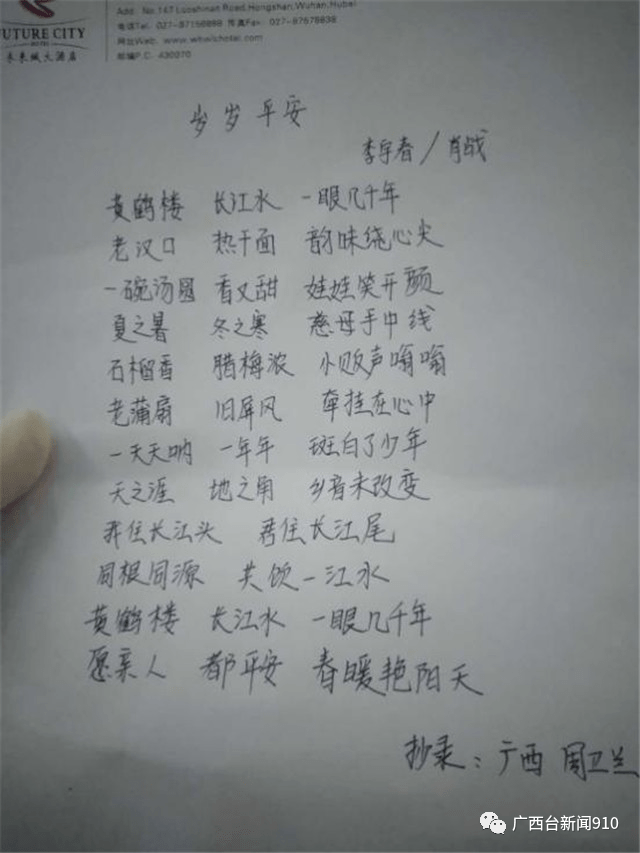 Add. No.147 Luoshinan Road, Hongshan, Wuhan, Hubei
电话Tel: 027-87156888 传真Fax: 027-87678838
网址Web. www.whwlchotel.com
邮编P.C. 430070
FUTURE CITY
HOTEL
未来城大酒店
岁岁平安
李宇春/肖战
黄鹤楼 长江水 一眼几千年
老汉口 热干面 韵味绕心尖
一碗汤圆 香又甜 娃娃笑开颜
夏之暑 冬之寒 慈母手中线
石榴香 腊梅浓 小贩声嗡嗡
老蒲扇 旧屏风 牵挂在心中
一天天呐 一年年 斑白了少年
天之涯 地之角 乡音未改变
我住长江头 君住长江尾
同根同源 共饮一江水
黄鹤楼 长江水 一眼几千年
愿亲人 都平安 春暖艳阳天
抄录：广西 周卫兰
广西台新闻910